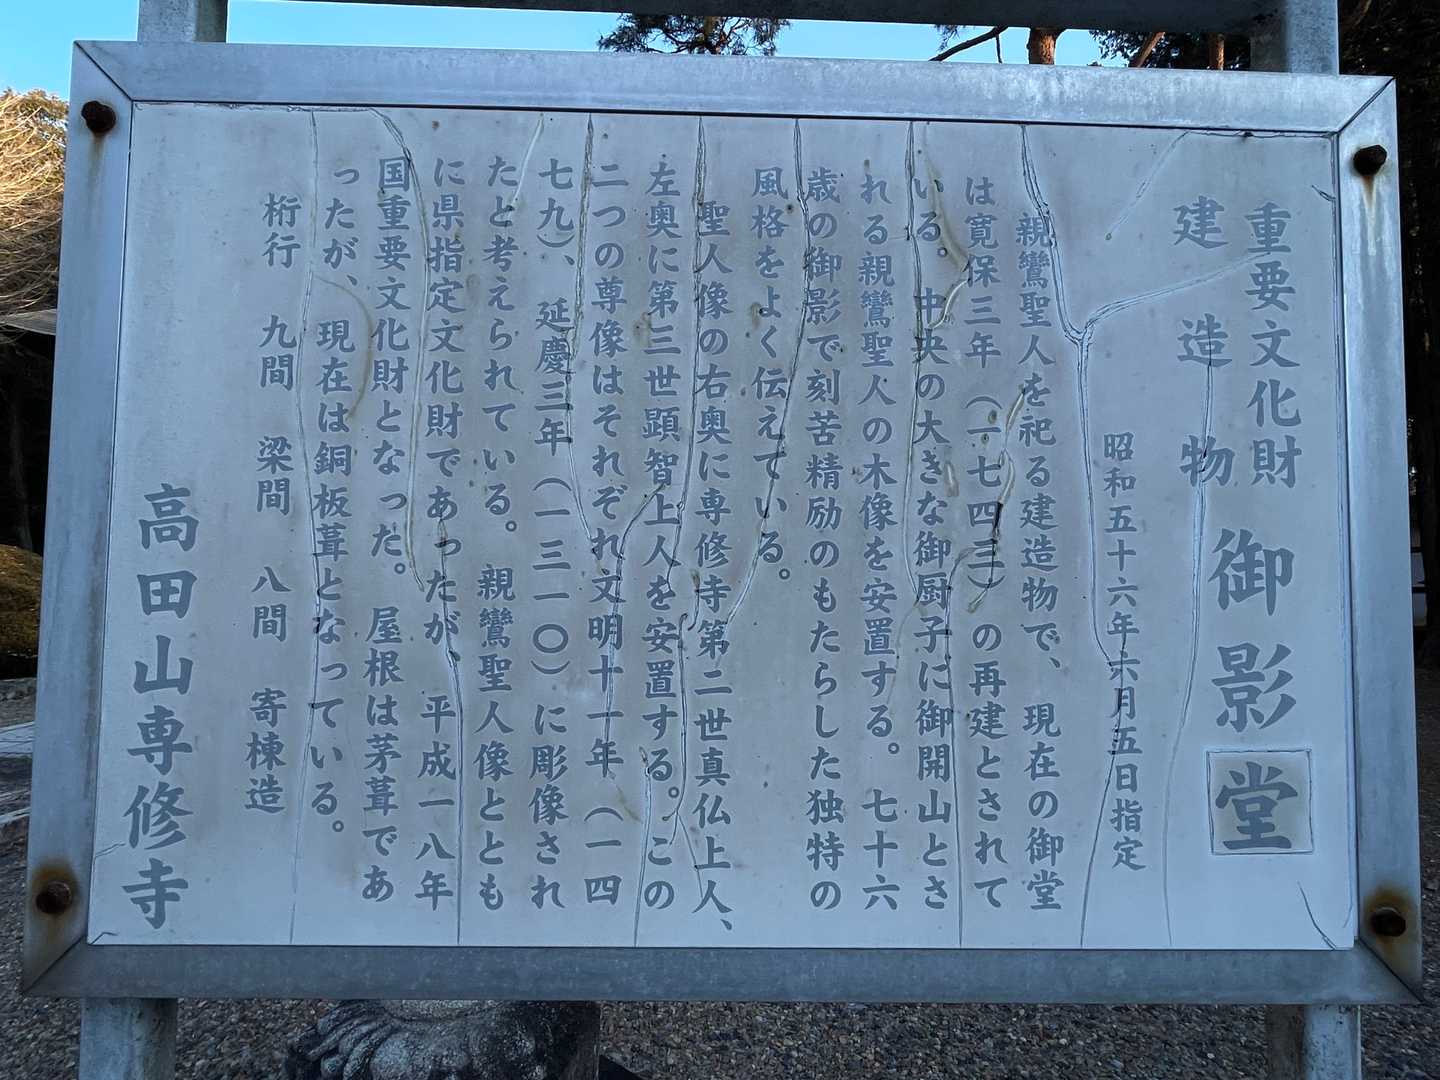 重要文化財
建造物
御影堂
昭和五十六年六月五日指定
親鸞聖人を祀る建造物で、現在の御堂
は寛保三年（一七四三）の再建とされて
いる。中央の大きな御厨子に御開山とさ
れる親鸞聖人の木像を安置する。七十六
歳の御影で刻苦精励のもたらした独特の
風格をよく伝えている。
聖人像の右奥に専修寺第二世真仏上人、
左奥に第三世顕智上人を安置する。この
二つの尊像はそれぞれ文明十一年（一四
七九）、延慶三年（一三一〇）に彫像され
たと考えられている。親鸞聖人像ととも
に県指定文化財であったが、平成一八年
国重要文化財となった。屋根は茅葺であ
ったが、現在は銅板葺となっている。
桁行 九間 梁間 八間 寄棟造
高田山専修寺